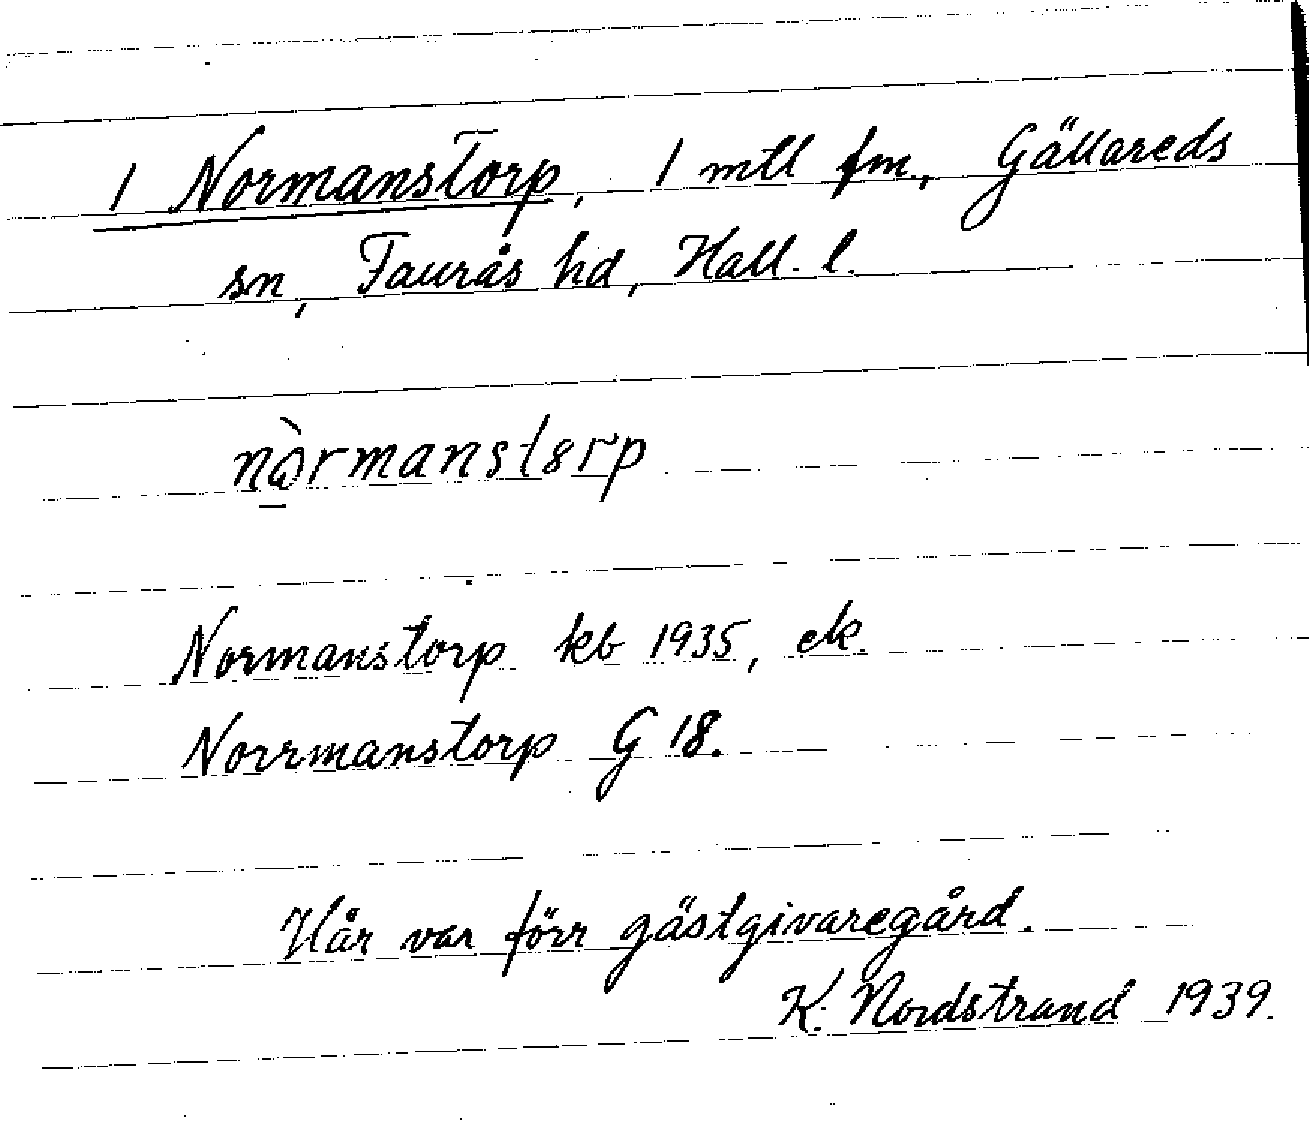 1 Normanstorp, 1 mtl fm., Gällareds
sn, Faurås hd, Hall. l.
nòrmanstørp
Normanstorp kb 1935, ek.
Norrmanstorp G 18.
Här var förr gästgivaregård.
K. Nordstrand 1939.